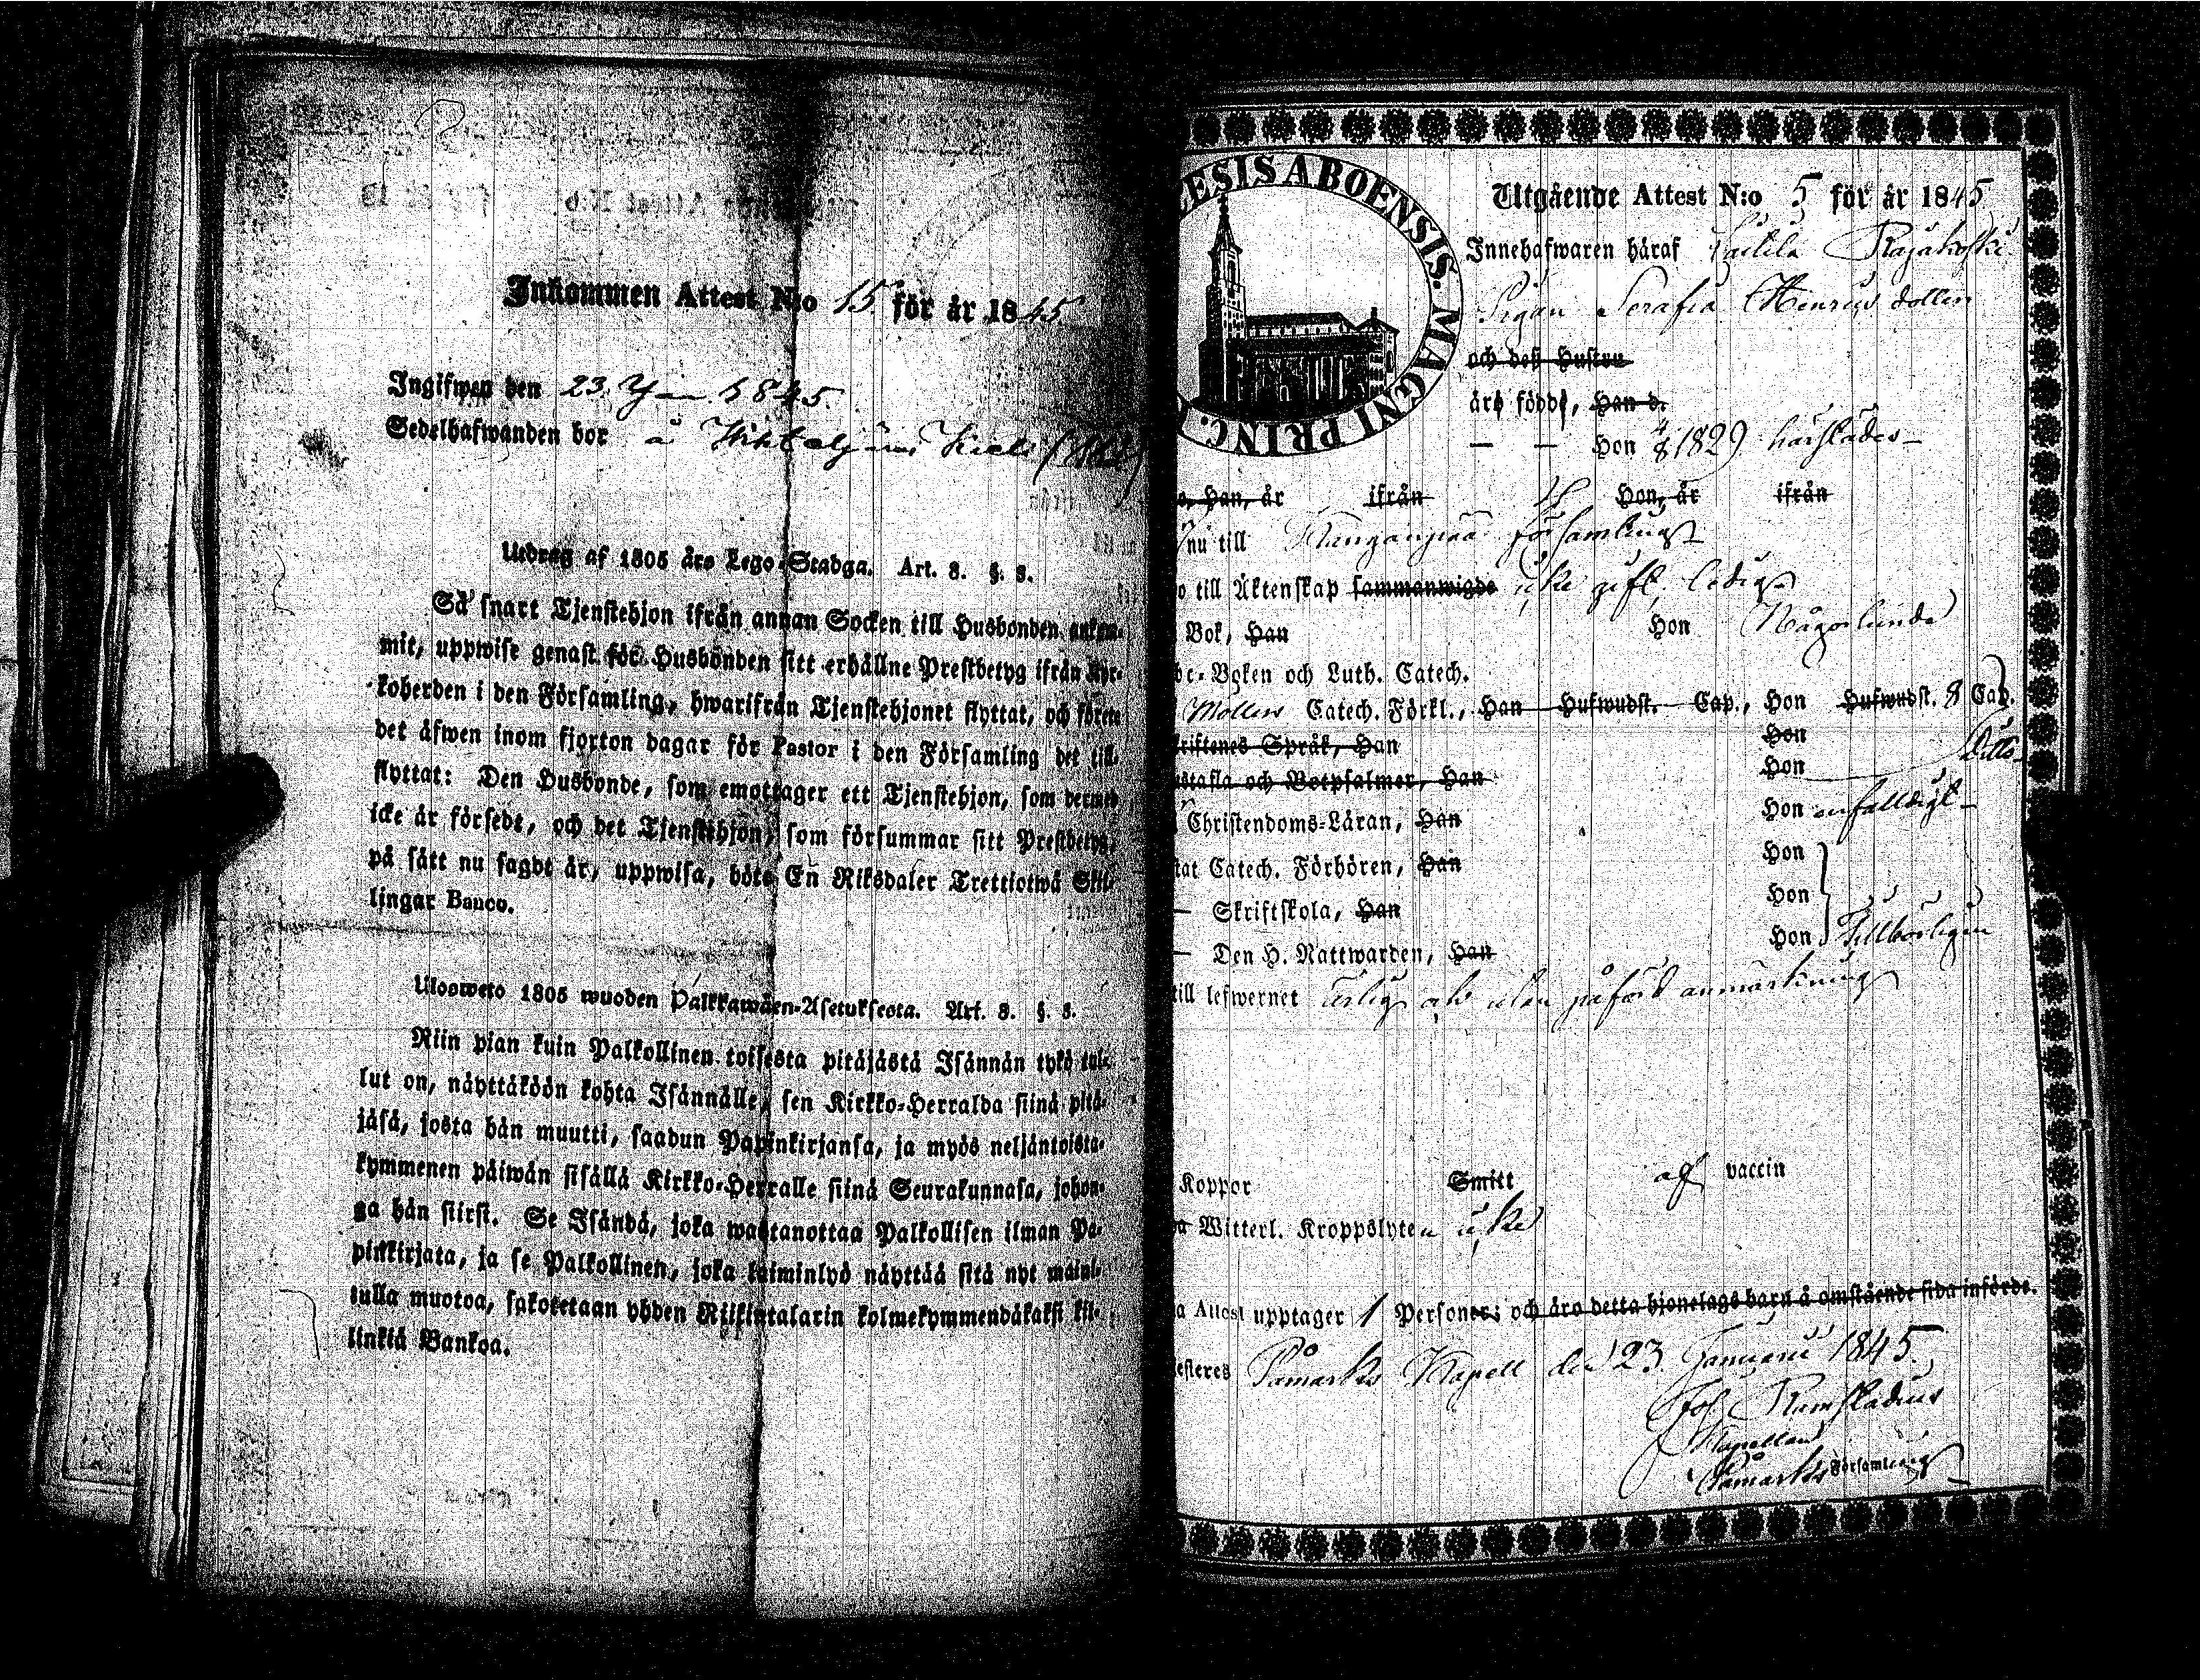 Inkommen Attest N:o 15. för år 1845.
Ingifwen den 23 Jan 1845.
Sedelhafwanden bor å
Utdrag af 1805 års Lego-Stadga. Art. 8. §. 3.
Så snart Tjenstehjon ifrån annan Socken till Husbonden ankom-
mit, uppwise genast för Husbonden sitt erhållne Prestbetyg ifrån Kyr-
koherden i den Församling, hwarifrån Tjenstehjonet flyttat, och förete
det äfwen inom fjorton dagar för Pastor i den Församling det till-
flyttat: Den Husbonde, som emottager ett Tjenstehjon, som dermed
icke är försedt, och det Tjenstehjon, som försummar sitt Prestbetyg,
på sätt nu sagdt är, uppwisa, böte En Riksdaler Trettiotwå Skil-
lingar Banco.
Ulosweto 1805 wuoden Palkkawäen-Asetuksesta. Art. 8. §. 3.
Niin pian kuin Palkollinen toisesta pitäjästä Isännän tykö tul-
lut on, näyttäköön kohta Isännälle, sen Kirkko-Herralda siinä pitä-
jäsä, josta hän muutti, saadun Papinkirjansa, ja myös neljäntoista-
kymmenen päiwän sisällä Kirkko-Herralle siinä Seurakunnasa, johon-
ga hän siirsi. Se Isändä, joka wastanottaa Palkollisen ilman Pa-
pinkirjata, ja se Palkollinen, joka laiminlyö näyttää sitä nyt maini-
tulla muotoa, sakotetaan yhden Riikintalarin kolmekymmendäkaksi kil-
linkiä Bankoa.
ESIS ABOENSIS. MAGNI PRINC.
Utgående Attest N:o 5 för år 1845
Innehafwaren häraf Rajakoski
Pigan Serafia Henricsdotter
och dess Hustru
äro födde, Han d.
— — Hon 1829 härstädes —
o, Han, år ifrån Hon, år ifrån
nu till Kangaupää församling
o till Äktenskap sammanwigde icke gift, ledig
Bok, Han Hon Någorlunda
be-Boken och Luth. Catech.
Möllers Catech. Förkl., Han Hufwudst. Cap., Hon Hufwudst. 8 Cap.
kriftenes Språk, Han Hon
ustafla och Botpsalmer, Han Hon Ditto
Christendoms-Läran, Han Hon enfaldigt —
tat Catech. Förhören, Han Hon
— Skriftskola, Han Hon
— Den H. Nattwarden, Han Hon Tillbörligen
till lefwernet ärlig och utan påförd anmärkning
Koppor Smitt af vaccin
a Witterl. Kroppslyten icke
a Attest upptager 1 Personer; och äro detta hjonelags barn å omstående sida införde.
esteres Påmarks Kapell den 23 Januarii 1845.
Joh. Ramstadius
Kapellan
Påmarks Församling